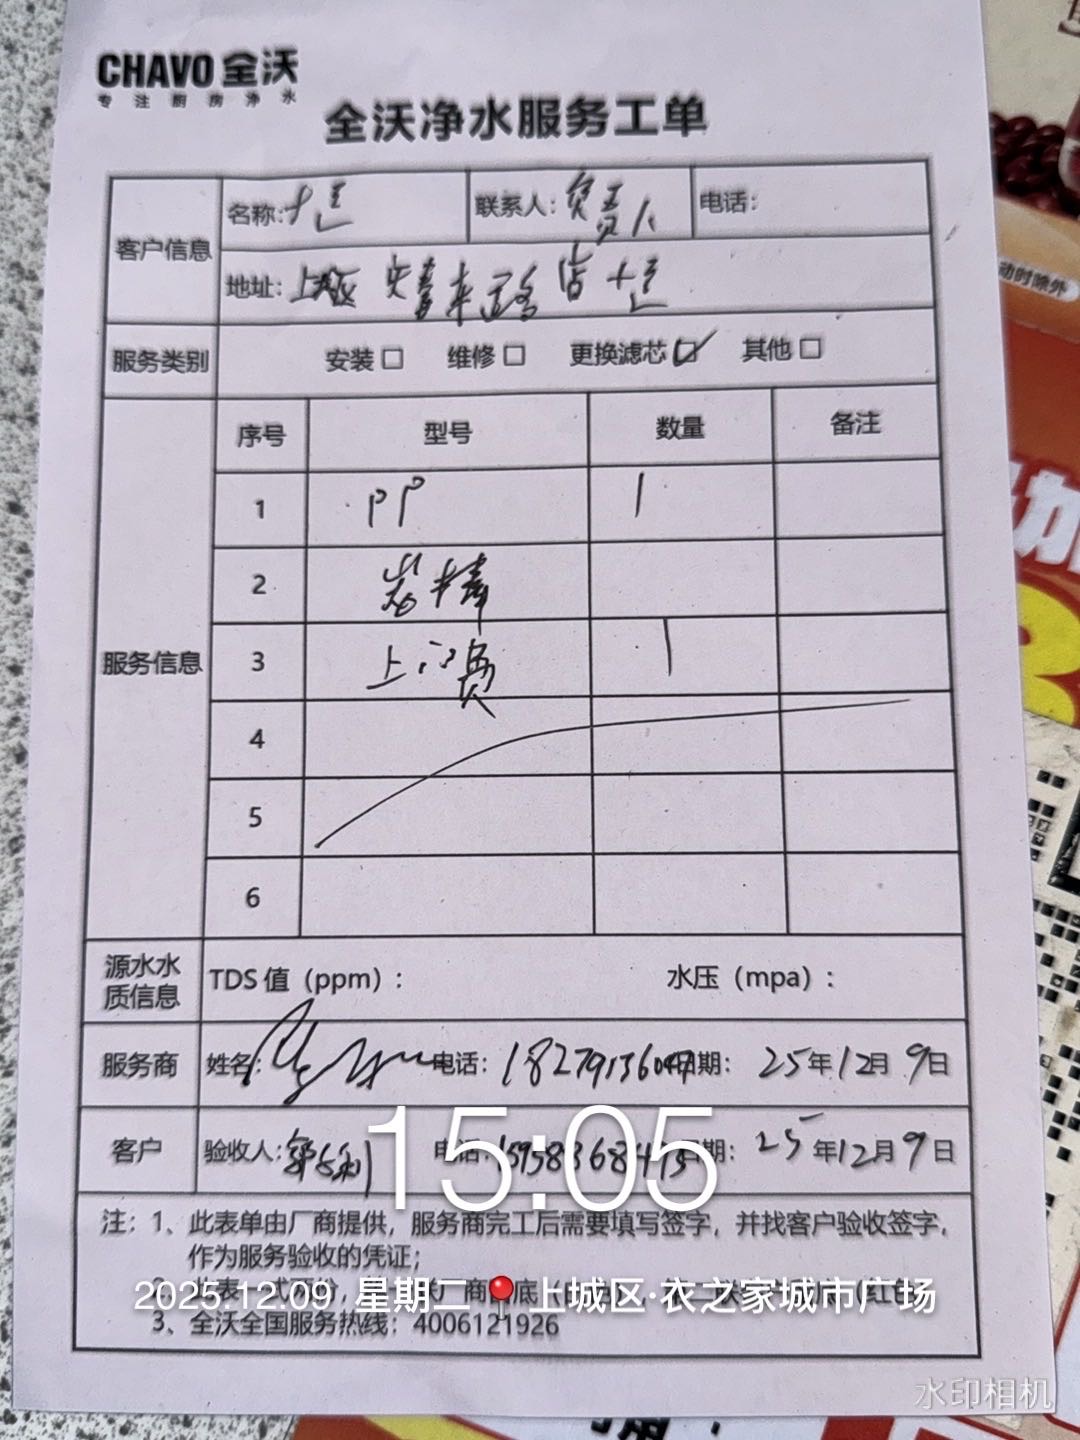 CHAVO 全沃
专注厨房净水
全沃净水服务工单
客户信息
名称:
联系人: 负责人
电话:
地址: 上城区
路店
服务类别
安装□ 维修□ 更换滤芯☑ 其他□
服务信息
序号 型号 数量 备注
1 PP 1
2 炭棒
3 上门费 1
4
5
6
源水水质信息
TDS 值（ppm）: 水压（mpa）:
服务商 姓名: 电话: 日期: 25年12月9日
客户 验收人: 电话: 日期: 25年12月9日
15:05
注: 1、此表单由厂商提供，服务商完工后需要填写签字，并找客户验收签字，
作为服务验收的凭证；
2025.12.09 星期二 上城区·衣之家城市广场
3、全沃全国服务热线: 4006121926
水印相机
动时除外
加